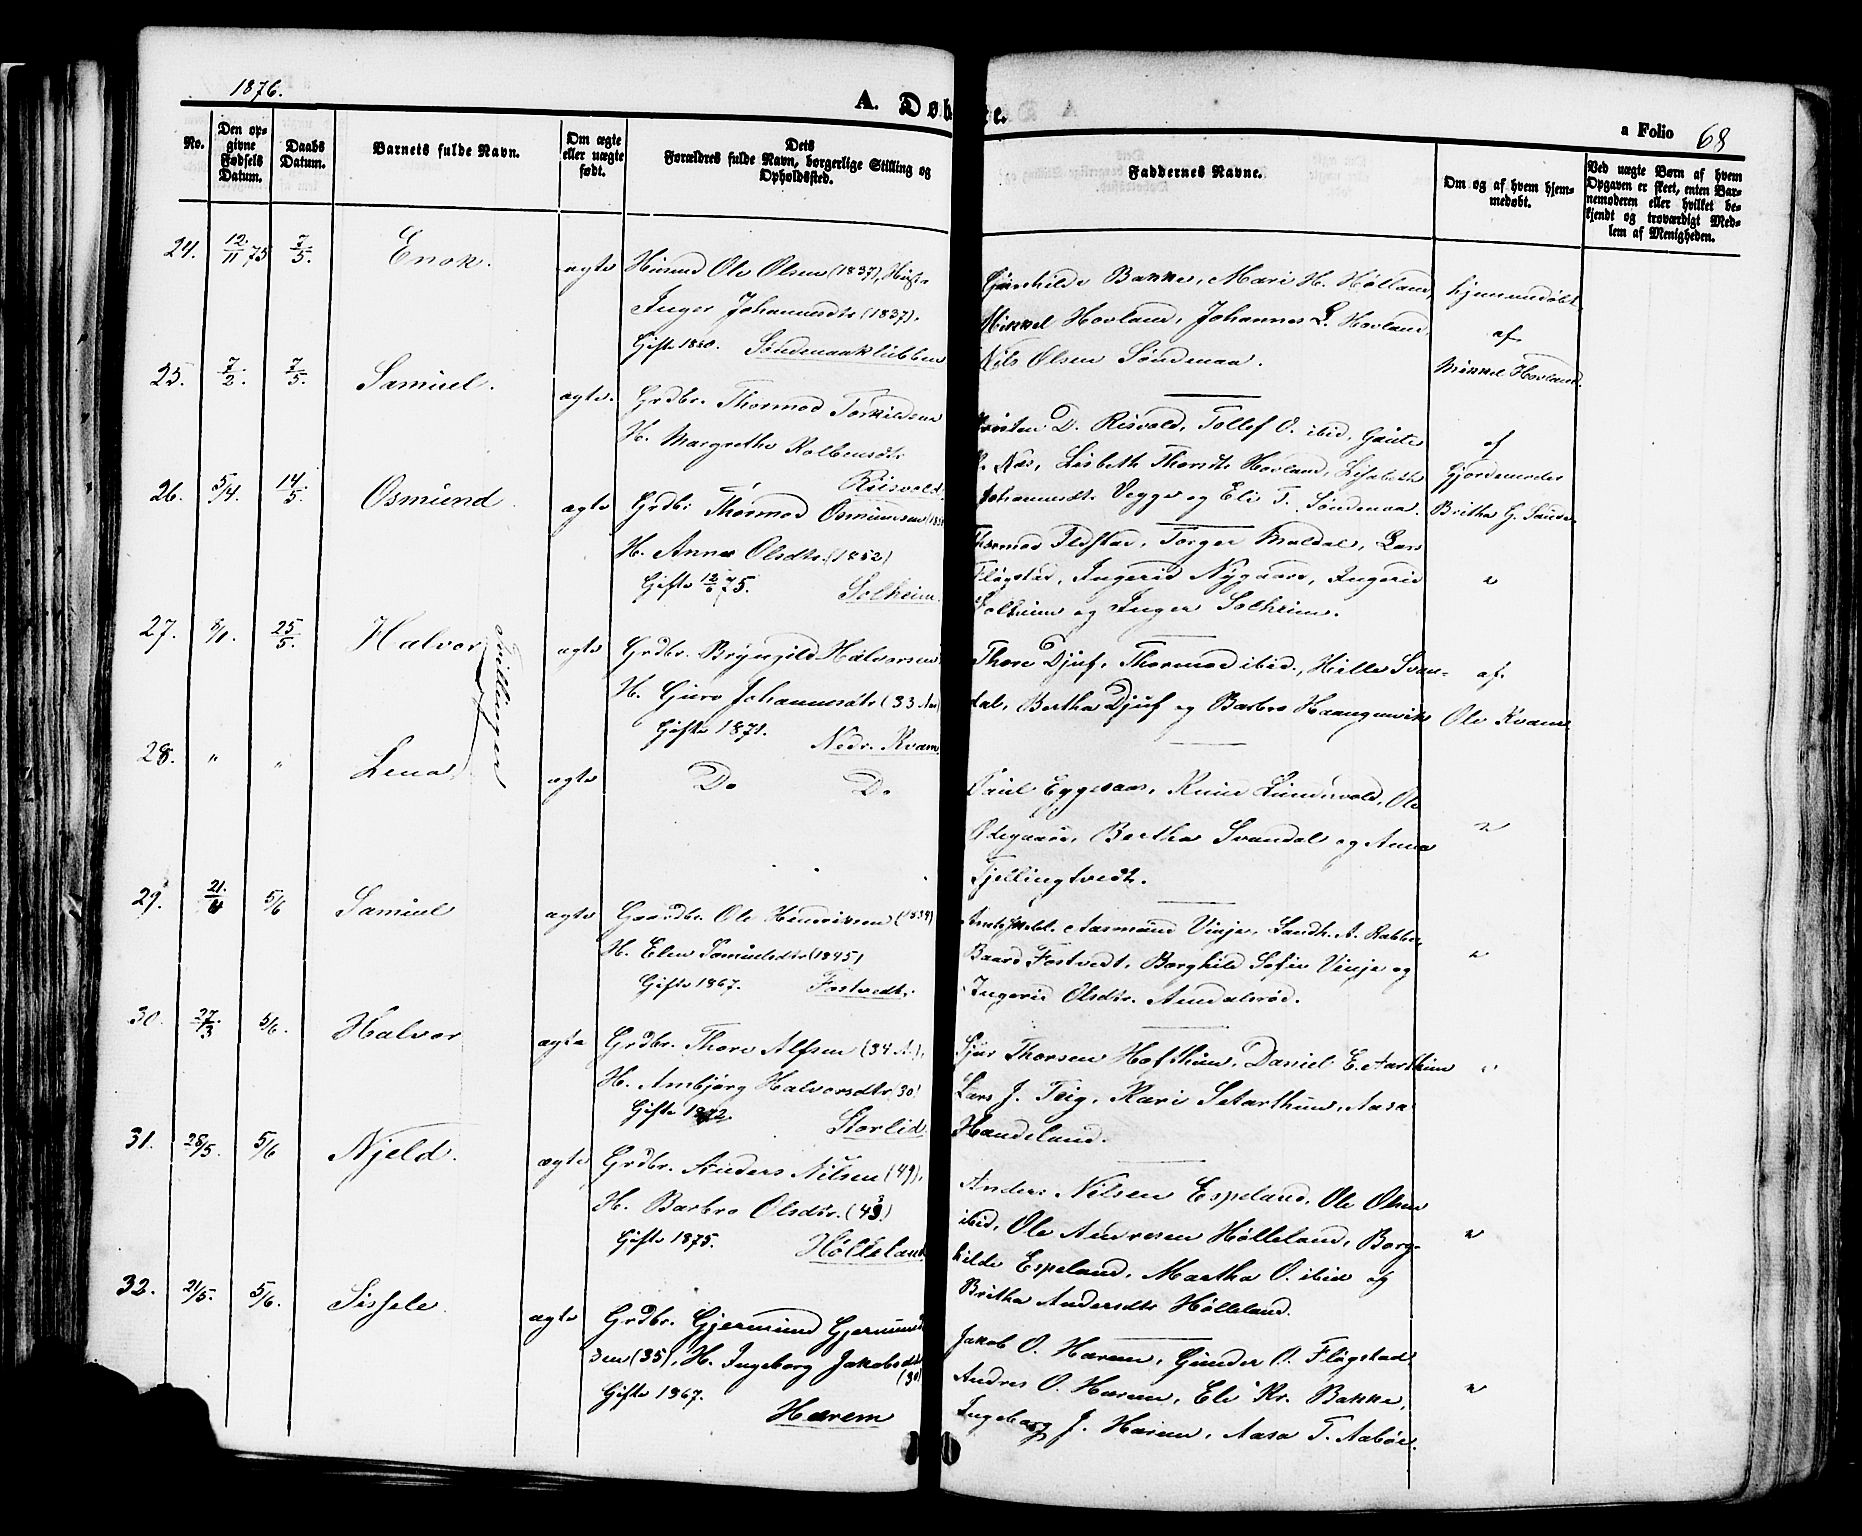 1876.
A. Døb
e.
a Folio 68
No.
Den op-
givne
Fødsels
Datum.
Daabs
Datum.
Barnets fulde Navn.
Om ægte
eller uægte
født.
Dets
Forældres fulde Navn, borgerlige Stilling og
Opholdssted.
Faddernes Navne.
Om og af hvem hjem-
medøbt.
Ved uægte Børn af hvem
Opgaven er skeet, enten Bar-
nemoderen eller hvilket be-
kjendt og troværdigt Med-
lem af Menigheden.
24. 12/11 75 7/5. Enok. ægte Husmd Ole Olsen (1837), Hust.
Inger Johannesdtr (1837).
Gifte 1860. Søndenaaklubben
Gunhilde Bakke, Mari H. Hølland,
Mikkel Hovland, Johannes L. Hovland,
Nils Olsen Søndenaa.
hjemmedøbt
af
Mikkel Hovland.
25. 7/2. 7/5. Samuel. ægte. Grdbr. Thormod Torkildsen
H. Margrethe Kolbensdtr
Risvold.
D. Risvold, Tollef O. ibid, Gaute
Næs, Lisbeth Thorsdtr Hovland, Lisabeth
Johannesdtr. Vegge og Eli T. Søndenaa.
af
Gjordemoder
Britha G. Sande
26. 5/4. 14/5. Osmund. ægte Grdbr. Thormod Osmundsen
H. Anna Olsdtr. (1852)
Gifte 12/6 75. Solheim.
Thormod Tedstad, Torger Maldal, Lars
Fløgstad, Ingerid Nygaard, Ingerid
Solheim og Inger Solheim.
"
27. 8/1. 25/5. Halvor ægte Grdbr. Brynjild Halvorsen
H. Guro Johannesdtr (33 Aar)
Gifte 1871. Nedr. Kvam.
Tvillinger
Thore Djuf, Thormod ibid., Hille Svan-
dal, Bertha Djuf og Barbro Haangenvik
af
Ole Kvam
28. " " Lena ægte Do Do
Paul Eggesaas, Knud Lundevold, Ole
Ødegaard, Bertha Svandal og Anna
Fjellingtvedt.
"
29. 21/4 5/6 Samuel ægte Gaardbr. Ole Henriksen (1839)
H. Elen Samuelsdtr (1845)
Gifte 1867. Fostvedt.
Aasmund Vinje, Landh. A. Rabbe,
Baard Fostvedt, Borghild Sofie Vinje og
Ingerid Olsdtr. Amdalsrød.
"
30. 27/3 5/6. Halvor ægte Grdbr. Thore Alfsen (34 A.),
H. Ambjørg Halvorsdtr (30)
Gifte 1872. Storlid.
Sjur Thorsen Hofthun, Daniel E. Aarthun
Lars J. Teig, Kari S. Aarthun, Aasa
Handeland.
"
31. 28/5. 5/6 Njeld. ægte Grdbr. Anders Nilsen (49),
H. Barbro Olsdtr. (43)
Gifte 1875. Hølleland
Anders Nilsen Espeland, Ole Olsen
ibid, Ole Andresen Hølleland, Borg-
hilde Espeland, Martha O. ibid og
Britha Andersdtr Hølleland.
"
32. 21/5. 5/6. Sissele. ægte Grdbr. Gjermund Gjermund
sen (35), H. Ingeborg Jakobsdtr
(30)
Gifte 1867.
Harem
Jakob O. Harem, Gunder O. Fløgstad
Andres O. Harem, Eli Kr. Bakka,
Ingeborg J. Harem, Aasa T. Aabøe.
"